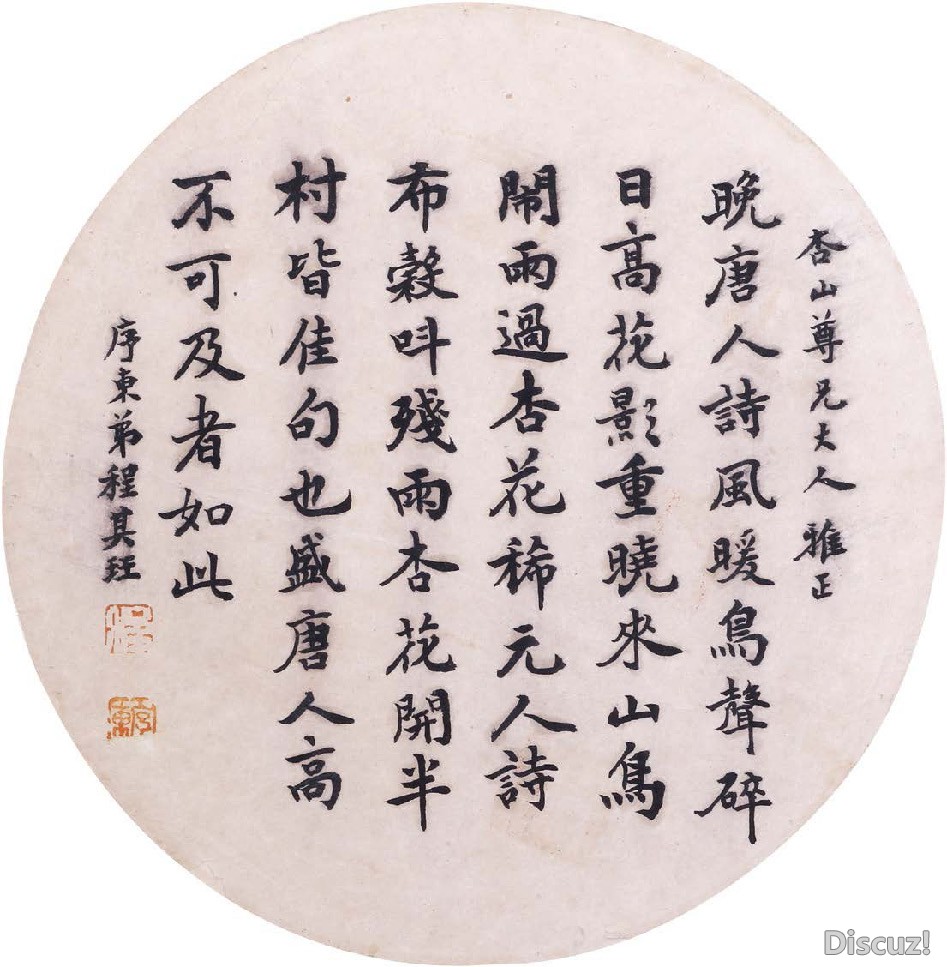 杏山尊兄大人雅正
晚唐人詩風暖鳥聲碎
日高花影重曉來山鳥
鬧雨過杏花稀元人詩
布穀呌殘雨杏花開半
村皆佳句也盛唐人高
不可及者如此
序東弟程其珏
序東
Discuz!